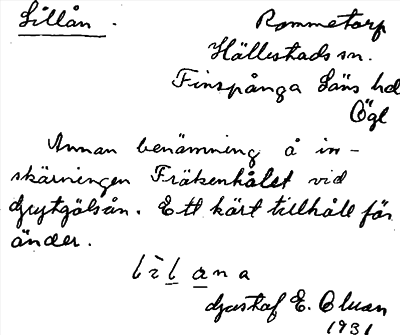 Lillån.
Rommetorp
Hällestads sn.
Finspånga läns hd
Ögl
Annan benämning å in-
skärningen Fräkenhålet vid
Grytgölsån. Ett kärt tillhåll för
änder.
lìlana
Gustaf E. Cluan
1931